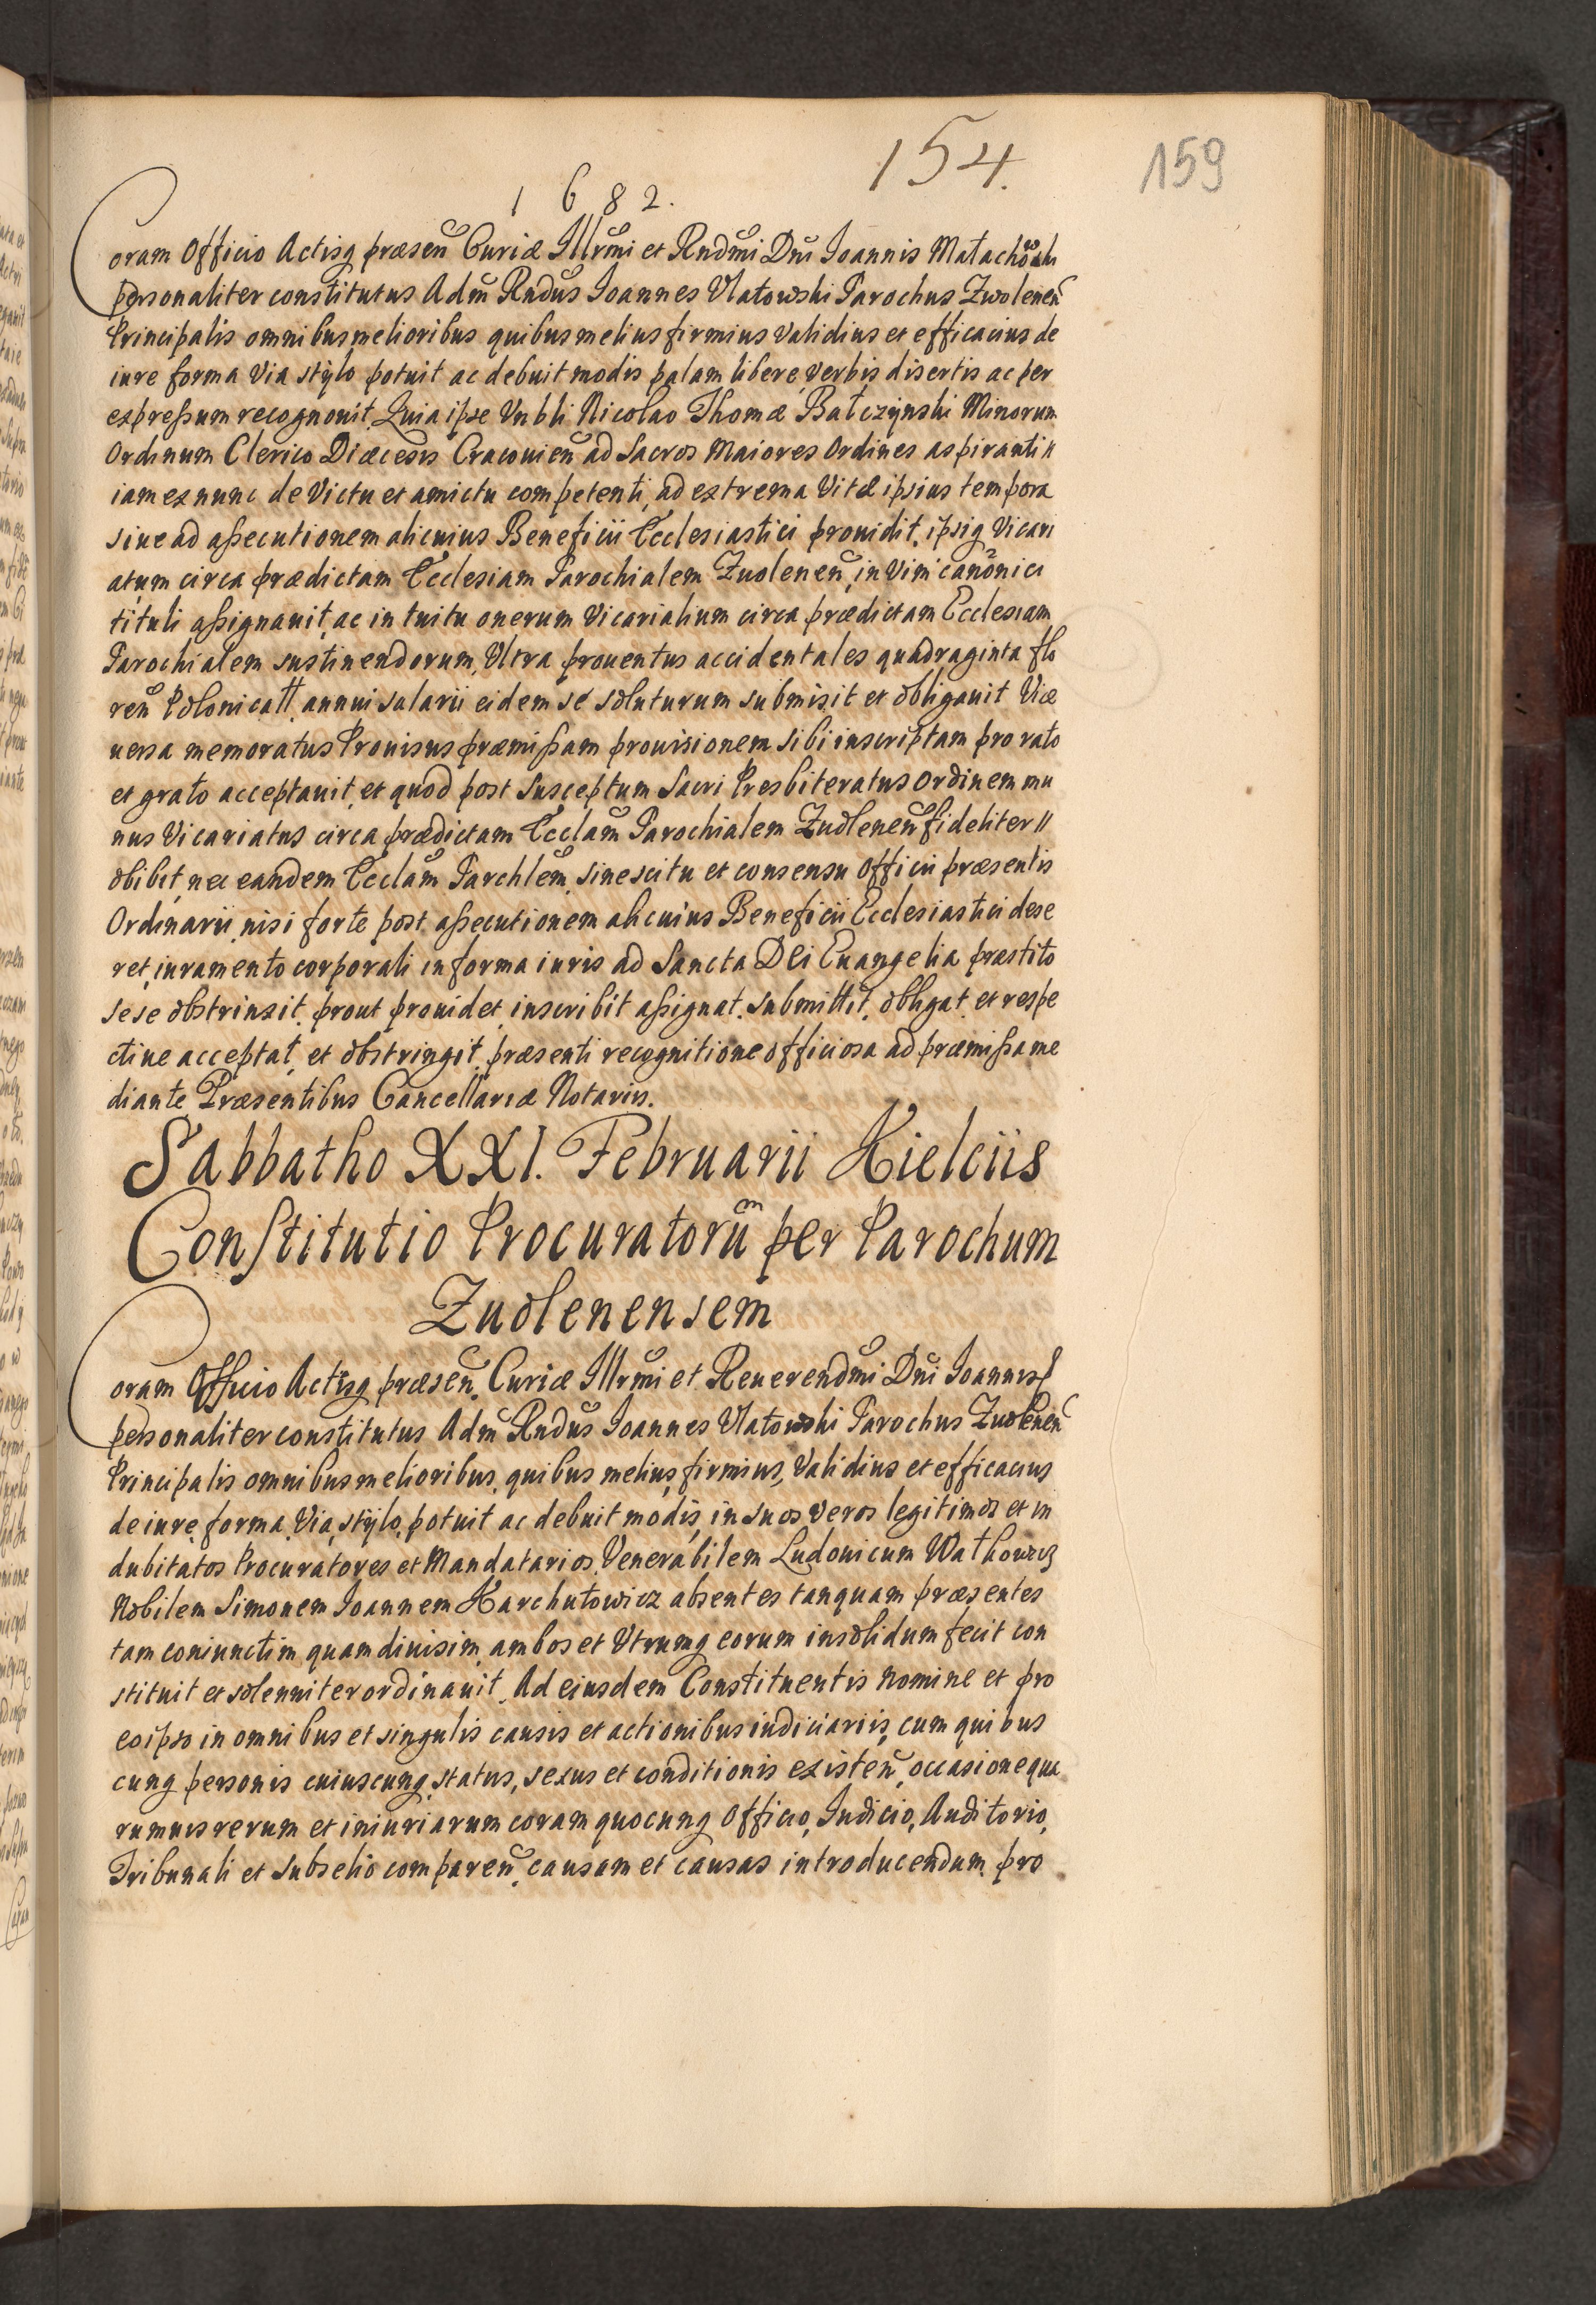 154.
159
1682.
Coram Officio Actisq præseñ Curiæ Illrmi et Rndmi Dni Ioannis Małachowski
personaliter constitutus Adm Rndus Ioannes Ulatowski Parochus Zwolenen̄
Principalis omnibus melioribus quibus melius firmius validius et efficacius de
iure forma via stylo potuit ac debuit modis palam libere verbis disertis ac per
expressum recognouit. Quia ipse Vnbli Nicolao Thomæ Batczynski Minorum
Ordinum Clerico Diæcesis Cracouien̄ ad Sacros Maiores Ordines aspiranti //
iam ex nunc de Victu et amictu competenti, ad extrema Vitæ ipsius tempora
siue ad assecutionem alicuius Beneficii Ecclesiastici prouidit, ipsiq Vicari
atum circa prædictam Ecclesiam Parochialem Zuolenen̄, in Vim canonici
tituli assignauit, ac in tuitu onerum Vicarialium circa prædictam Ecclesiam
Parochialem sustinendorum, Ultra prouentus accidentales quadraginta flo
ren̄ Polonicatt. annui salarii eidem se soluturum submisit et obligauit Vice
uersa memoratus Prouisus præmissam prouisionem sibi inscriptam pro rato
et grato acceptauit, et quod post susceptum Sacri Presbiteratus Ordinem mu
nus Vicariatus circa prædictam Ecclam Parochialem Zuolenen̄ fideliter //
obibit, nec eandem Ecclam Parchlem, sine scitu et consensu Officii præsentis
Ordinarii, nisi forte post assecutionem alicuius Beneficii Ecclesiastici dese
ret, iuramento corporali in forma iuris ad Sancta Dei Euangelia præstito
sese obstrinxit. prout prouidet, inscribit assignat. submittit, obligat. et respe
ctiue acceptat, et obstringit. præsenti recognitione officiosa ad præmissa me
diante Præsentibus Cancellariæ Notariis.
Sabbatho XXI. Februarii Kielciis
Constitutio Procuratorum per Parochum
Zuolenensem
Coram Officio Actisq præsen̄. Curiæ Illrmi et Reuerendmi Dni Ioannis
personaliter constitutus Adm Rndus Ioannes Ulatowski Parochus Zuolenen̄
Principalis omnibus melioribus, quibus melius, firmius, Validius et efficacius
de iure, forma, Via, stylo, potuit ac debuit modis, in suos veros legitimos et in
dubitatos Procuratores et Mandatarios, Venerabilem Ludouicum
Nobilem Simonem Ioannem Karchutowicz absentes tanquam præsentes
tam coniunctim quam diuisim, ambos et Utrumq eorum insolidum fecit con
stituit et solenniter ordinauit. Ad eiusdem Constituentis nomine et pro
eo ipso in omnibus et singulis causis et actionibus iudiciariis, cum quibus
cunq personis cuiuscunq, status, sexus et conditionis existen̄, occasione qua
rumuis rerum et iniuriarum coram quocunq Officio, Iudicio, Auditorio,
Tribunali et Subselio comparen̄, causam et causas introducendum, pro